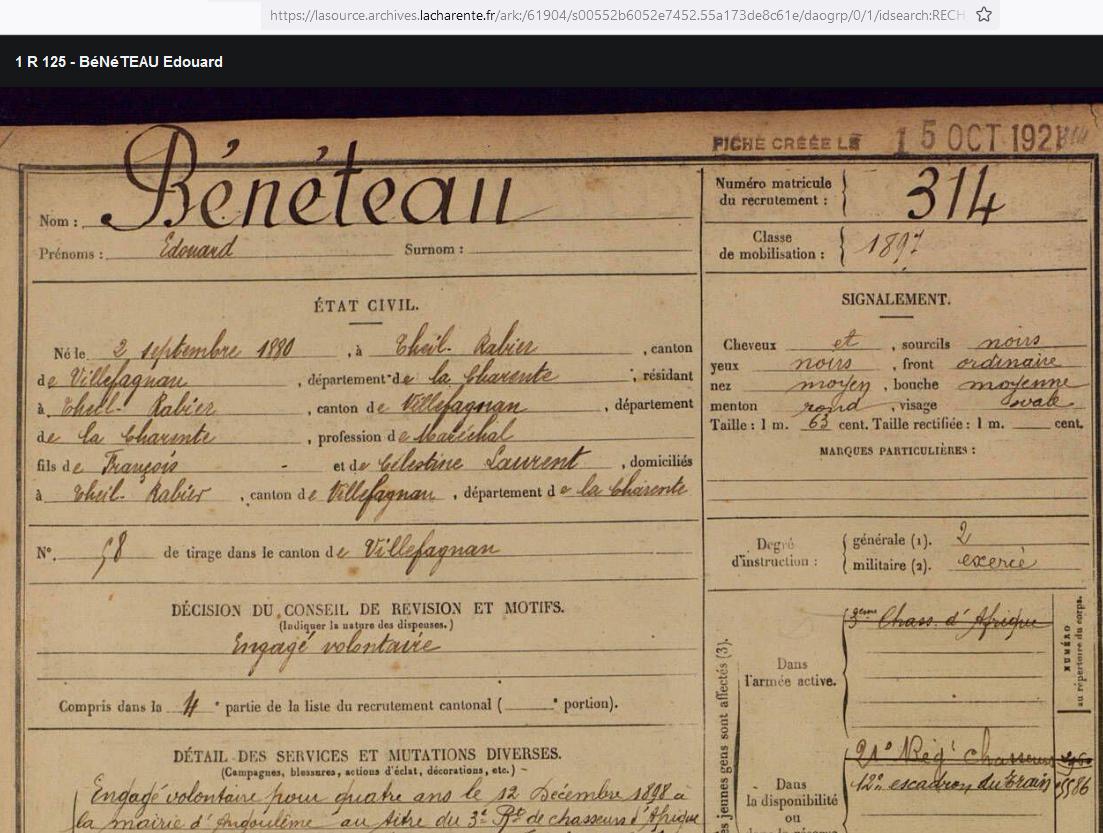 https://lasource.archives.lacharente.fr/ark:/61904/s00552b6052e7452.55a173de8c61e/daogrp/0/1/idsearch:RECH
1 R 125 - BéNéTEAU Edouard
FICHE CRÉÉE LE 15 OCT 192
Nom : Bénéteau
Prénoms : Edouard Surnom :
Numéro matricule
du recrutement : 314
Classe
de mobilisation : 1897
ÉTAT CIVIL.
Né le 2 septembre 1880, à Theil-Rabier, canton
de Villefagnan, département de la Charente, résidant
à Theil-Rabier, canton de Villefagnan, département
de la Charente, profession de Maréchal
fils de François - et de Célestine Laurent, domiciliés
à Theil-Rabier, canton de Villefagnan, département de la Charente
N° 58 de tirage dans le canton de Villefagnan
DÉCISION DU CONSEIL DE REVISION ET MOTIFS.
(Indiquer la nature des dispenses.)
Engagé volontaire
Compris dans la 4e partie de la liste du recrutement cantonal ( e portion).
DÉTAIL DES SERVICES ET MUTATIONS DIVERSES.
(Campagnes, blessures, actions d'éclat, décorations, etc.)
Engagé volontaire pour quatre ans le 12 Décembre 1898 à
la mairie d'Angoulême au titre du 3e Rt de chasseurs d'Afrique
SIGNALEMENT.
Cheveux et, sourcils noirs
yeux noirs, front ordinaire
nez moyen, bouche moyenne
menton rond, visage ovale
Taille : 1 m. 63 cent. Taille rectifiée : 1 m. cent.
MARQUES PARTICULIÈRES :
Degré
d'instruction :
générale (1). 2
militaire (2). exercé
es jeunes gens sont affectés (3).
Dans
l'armée active.
3eme Chass. d'Afrique
NUMÉRO
au répertoire du corps.
Dans
la disponibilité
ou
21e Régt Chasseurs
12e escadron du train 5586